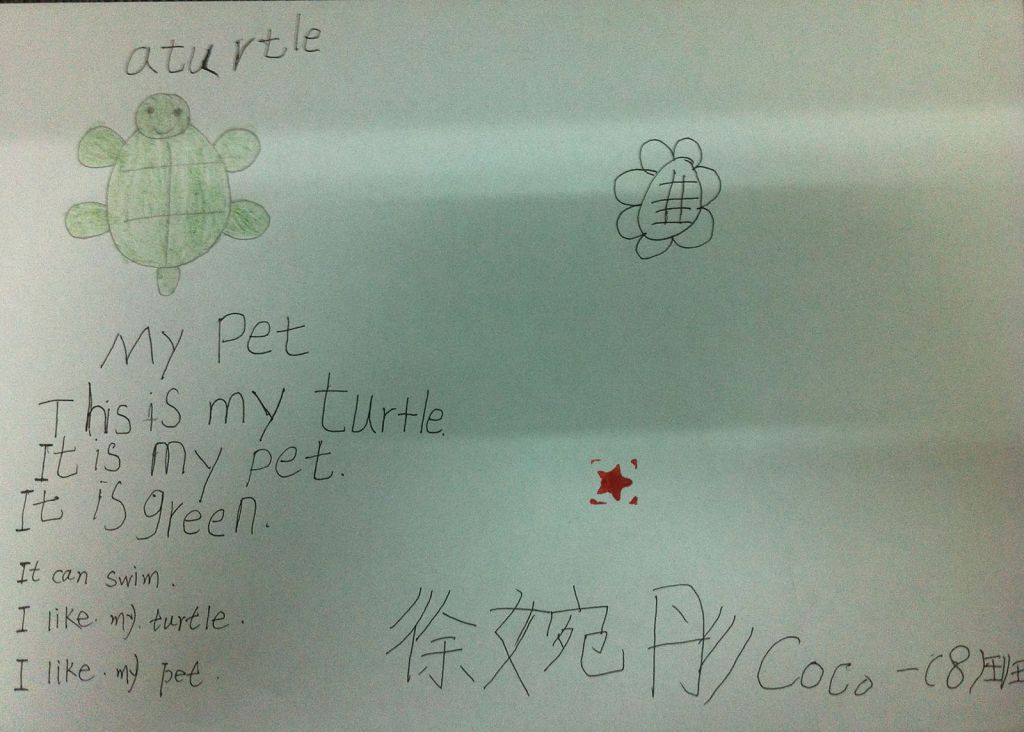 aturtle
My Pet
This is my turtle.
It is my pet.
It is green.
It can swim.
I like my turtle.
I like my pet.
徐婉彤 Coco 一(8)班